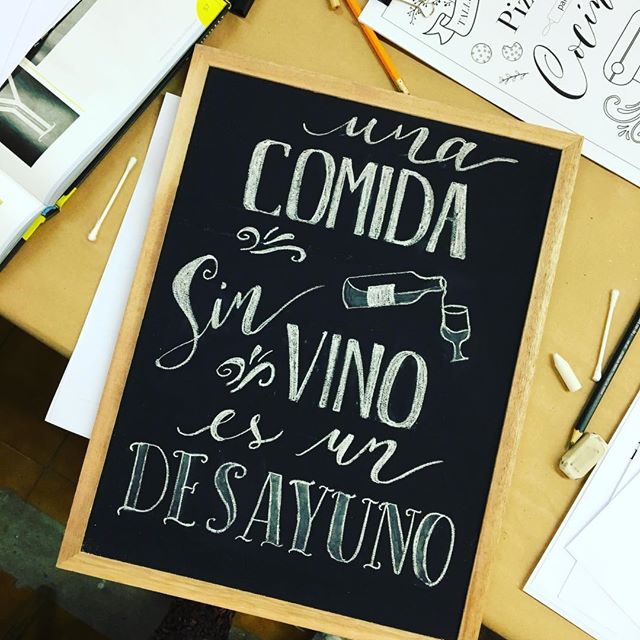 una
COMIDA
Sin
VINO
es un
DESAYUNO
Piz
Cocin